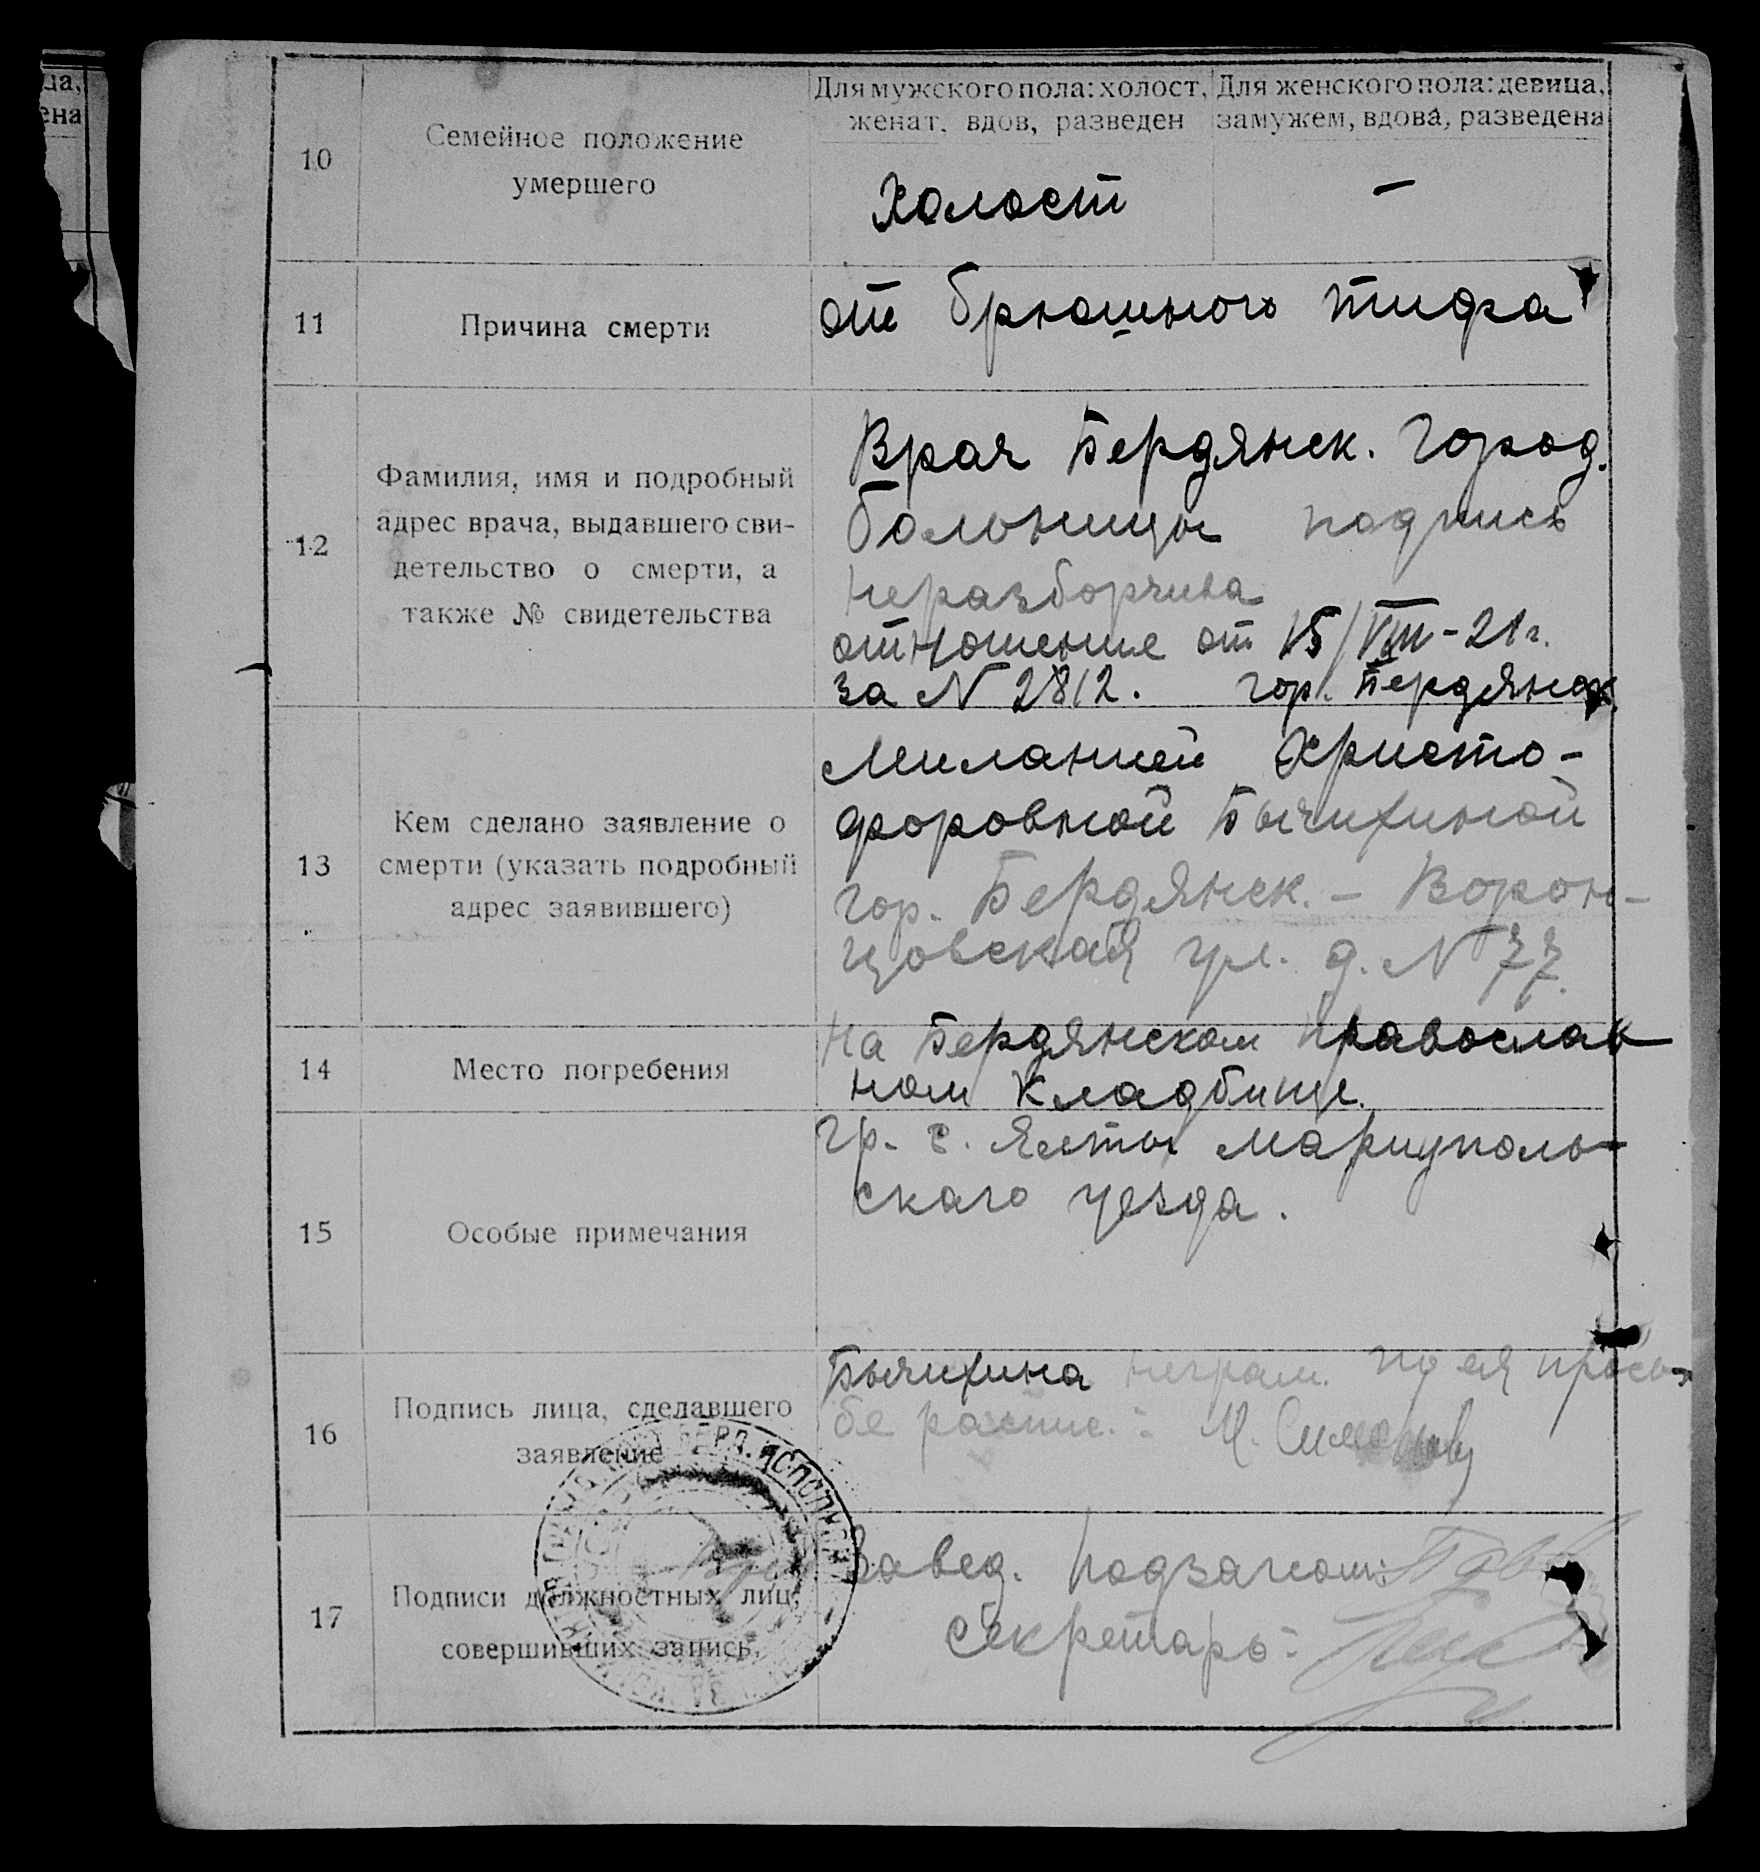 ца,
ена
10
Семейное положение
умершего
Для мужского пола: холост,
женат, вдов, разведен
Для женского пола: девица,
замужем, вдова, разведена
Холост
—
11
Причина смерти
от брюшного тифа
12
Фамилия, имя и подробный
адрес врача, выдавшего сви-
детельство о смерти, а
также № свидетельства
Врач Бердянск. Город.
Больницы подпись
неразборчива
отношение от 15/VIII-21 г.
за N 2812. гор. Бердянск
13
Кем сделано заявление о
смерти (указать подробный
адрес заявившего)
Миланией Христо-
форовной Бычихиной
гор. Бердянск. – Ворон-
цовская ул. д. N 77.
14
Место погребения
На Бердянском православ
ном кладбище.
15
Особые примечания
гр. с. Ялты Мариуполь-
скаго уезда.
16
Подпись лица, сделавшего
заявление
Бычихина неграм. по ея прось-
бе распис.:
17
Подписи должностных лиц,
совершивших запись.
Завед. подзагсом:
Секретарь: